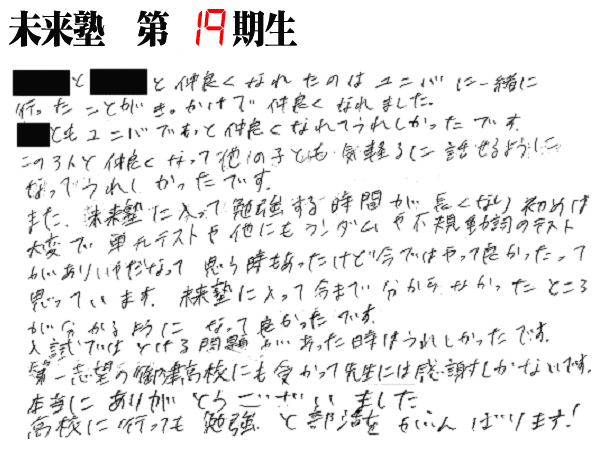 未来塾 第19期生
と と仲良くなれたのはユニバに一緒に
行ったことがきっかけで仲良くなれました。
ともユニバでもっと仲良くなれてうれしかったです。
この3人と仲良くなって他の子とも気軽るに話せるように
なってうれしかったです。
また、未来塾に入って勉強する時間が長くなり初めは
大変で単元テストや他にもランダムや不規動詞のテスト
がありいやだなって思う時もあったけど今ではやって良かったって
思っています。未来塾に入って今まで分からなかったところ
が分かるようになって良かったです。
入試ではとける問題があった時はうれしかったです。
第一志望の 高校にも受かって先生には感謝しかないです。
本当にありがとうございました
高校に行っても勉強と部活をがんばります!